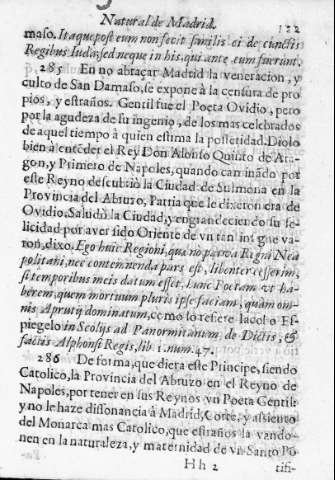 Natural de Madrid. 122
maso. Itaque post eum non fecit similis ei de cunctis
Regibus Iuda, sed neque in his, qui ante eum fuerunt.
285 En no abraçar Madrid la veneracion, y
culto de San Damaso, se expone à la censura de pro
pios, y estraños. Gentil fue el Poeta Ovidio, pero
por la agudeza de su ingenio, de los mas celebrados
de aquel tiempo à quien estima la posteridad. Diolo
bien à entẽder el Rey Don Alonso Quinto de Ara-
gon, y Primero de Napoles, quando caminãdo por
este Reyno descubriò la Ciudad de Sulmona en la
Provincia del Abruzo, Patria que le dixeron era de
Ovidio. Saludò la Ciudad, y engrandeciendo su fe-
licidad por aver sido Oriente de vn tan insigne va-
ron, dixo. Ego huic Regioni, quæ nõ parva Regni Nea
politani, nec contemnenda pars est, libenter cesserim,
si temporibus meis datum esset, hunc Poetam vt ha-
berem, quem mortuum pluris ipse faciam, quàm om-
nis Aprutij dominatum, como lo refiere Iacobo Es-
piegelo in Scolijs ad Panormitanum de Dictis, &
factis Alphonsi Regis, lib. 1. num. 47.
286 De forma, que diera este Principe, siendo
Catolico, la Provincia del Abruzo en el Reyno de
Napoles, por tener en sus Reynos vn Poeta Gentil:
y no le haze dissonancia à Madrid, Corte, y assiento
del Monarca mas Catolico, que estraños la vando-
nen en la naturaleza, y maternidad de vn Santo Põ
Hh 2 tifi-